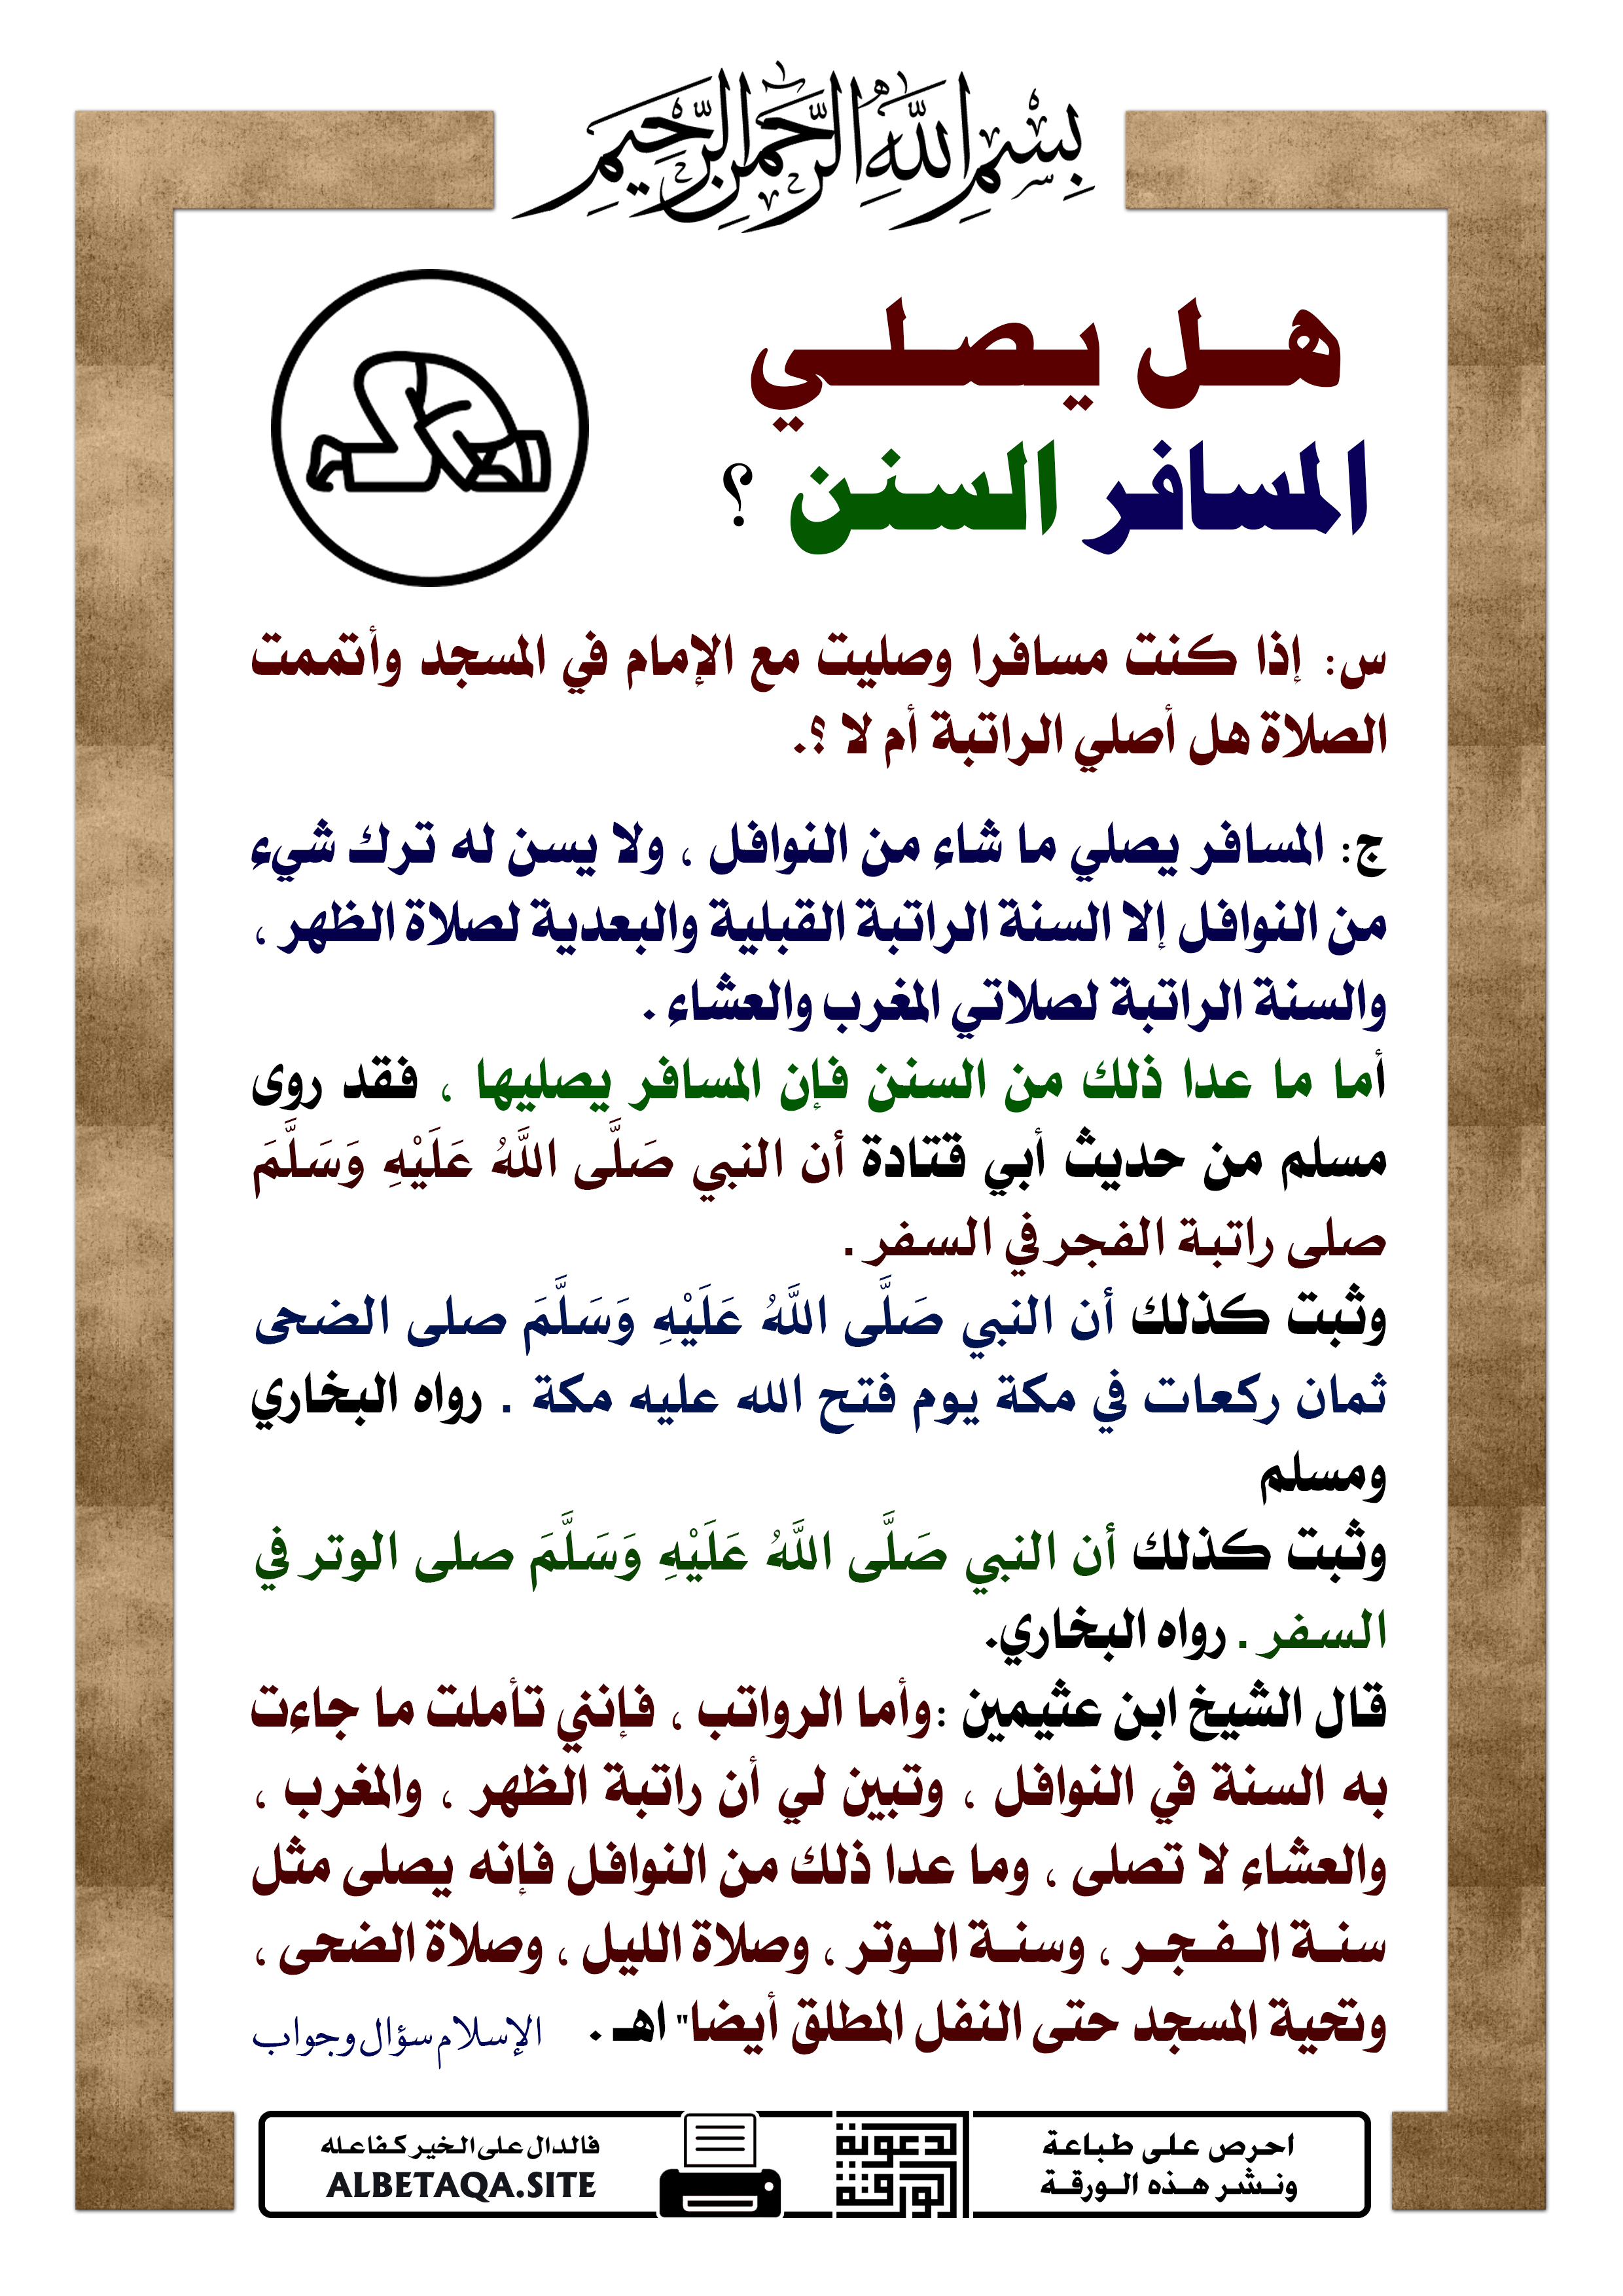 بِسْمِ اللَّهِ الرَّحْمَنِ الرَّحِيمِ
هل يصلي
المسافر السنن ؟
س: إذا كنت مسافرا وصليت مع الإمام في المسجد وأتممت
الصلاة هل أصلي الراتبة أم لا ؟.
ج: المسافر يصلي ما شاء من النوافل ، ولا يسن له ترك شيء
من النوافل إلا السنة الراتبة القبلية والبعدية لصلاة الظهر ،
والسنة الراتبة لصلاتي المغرب والعشاء .
أما ما عدا ذلك من السنن فإن المسافر يصليها ، فقد روى
مسلم من حديث أبي قتادة أن النبي صَلَّى اللَّهُ عَلَيْهِ وَسَلَّمَ
صلى راتبة الفجر في السفر .
وثبت كذلك أن النبي صَلَّى اللَّهُ عَلَيْهِ وَسَلَّمَ صلى الضحى
ثمان ركعات في مكة يوم فتح الله عليه مكة . رواه البخاري
ومسلم
وثبت كذلك أن النبي صَلَّى اللَّهُ عَلَيْهِ وَسَلَّمَ صلى الوتر في
السفر . رواه البخاري.
قال الشيخ ابن عثيمين :وأما الرواتب ، فإنني تأملت ما جاءت
به السنة في النوافل ، وتبين لي أن راتبة الظهر ، والمغرب ،
والعشاء لا تصلى ، وما عدا ذلك من النوافل فإنه يصلى مثل
سنة الفجر ، وسنة الوتر ، وصلاة الليل ، وصلاة الضحى ،
وتحية المسجد حتى النفل المطلق أيضا" اهـ .
الإسلام سؤال وجواب
احرص على طباعة
ونشر هذه الورقة
الورقة
الدعوية
فالدال على الخير كفاعله
ALBETAQA.SITE